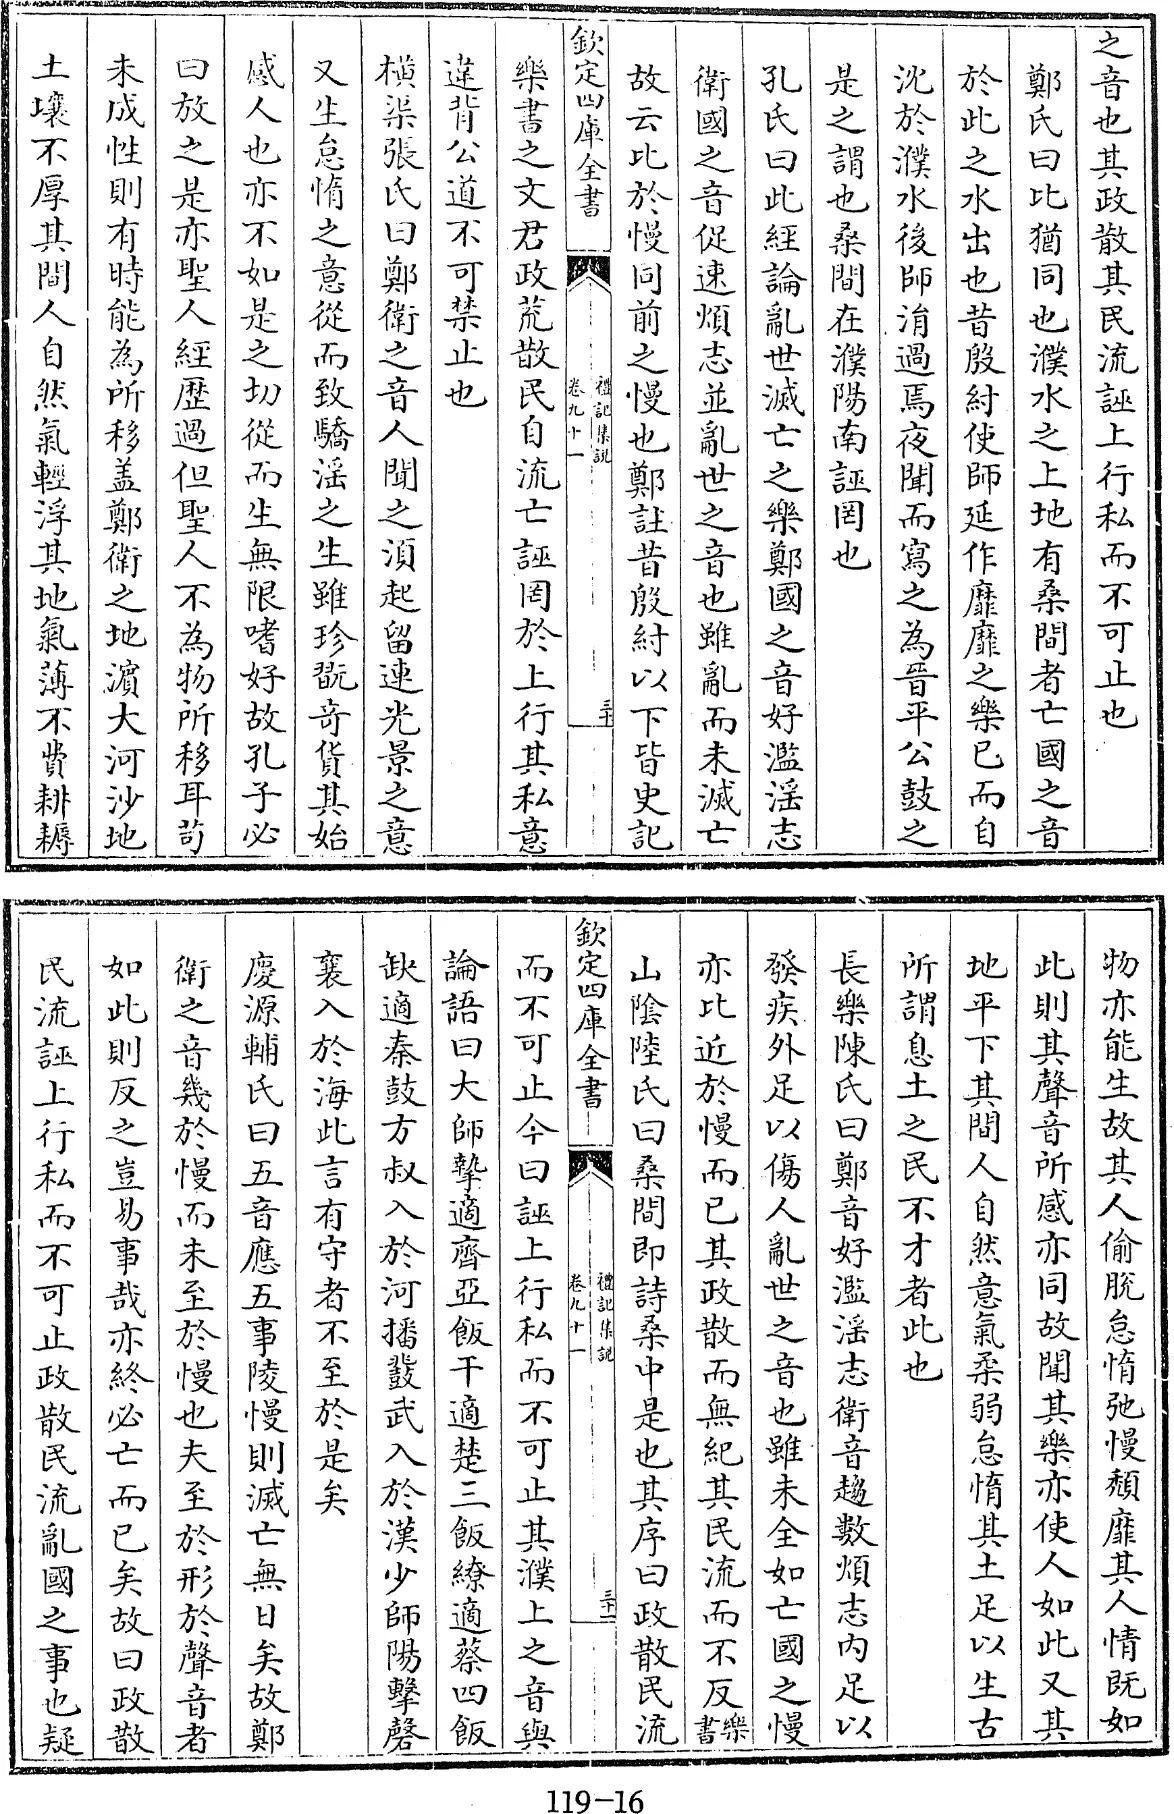 之音也其政散其民流誣上行私而不可止也
鄭氏曰比猶同也濮水之上地有桑間者亡國之音
於此之水出也昔殷紂使師延作靡靡之樂已而自
沈於濮水後師涓過焉夜聞而寫之為晉平公鼓之
是之謂也桑間在濮陽南誣罔也
孔氏曰此經論亂世滅亡之樂鄭國之音好濫淫志
衛國之音促速煩志並亂世之音也雖亂而未滅亡
故云比於慢同前之慢也鄭註昔殷紂以下皆史記
欽定四庫全書
禮記集說
卷九十一
三十
樂書之文君政荒散民自流亡誣罔於上行其私意
違背公道不可禁止也
橫渠張氏曰鄭衛之音人聞之須起留連光景之意
又生怠惰之意從而致驕淫之生雖珍翫奇貨其始
感人也亦不如是之切從而生無限嗜好故孔子必
曰放之是亦聖人經歷過但聖人不為物所移耳苟
未成性則有時能為所移盖鄭衛之地濵大河沙地
土壤不厚其間人自然氣輕浮其地氣薄不費耕耨
物亦能生故其人偷脫怠惰弛慢頽靡其人情既如
此則其聲音所感亦同故聞其樂亦使人如此又其
地平下其間人自然意氣柔弱怠惰其土足以生古
所謂息土之民不才者此也
長樂陳氏曰鄭音好濫淫志衛音趨數煩志內足以
發疾外足以傷人亂世之音也雖未全如亡國之慢
亦比近於慢而已其政散而無紀其民流而不反樂書
山陰陸氏曰桑間即詩桑中是也其序曰政散民流
欽定四庫全書
禮記集說
卷九十一
三十一
而不可止今曰誣上行私而不可止其濮上之音與
論語曰大師摯適齊亞飯干適楚三飯繚適蔡四飯
缺適秦鼓方叔入於河播鼗武入於漢少師陽擊磬
襄入於海此言有守者不至於是矣
慶源輔氏曰五音應五事陵慢則滅亡無日矣故鄭
衛之音幾於慢而未至於慢也夫至於形於聲音者
如此則反之豈易事哉亦終必亡而已矣故曰政散
民流誣上行私而不可止政散民流亂國之事也疑
119-16